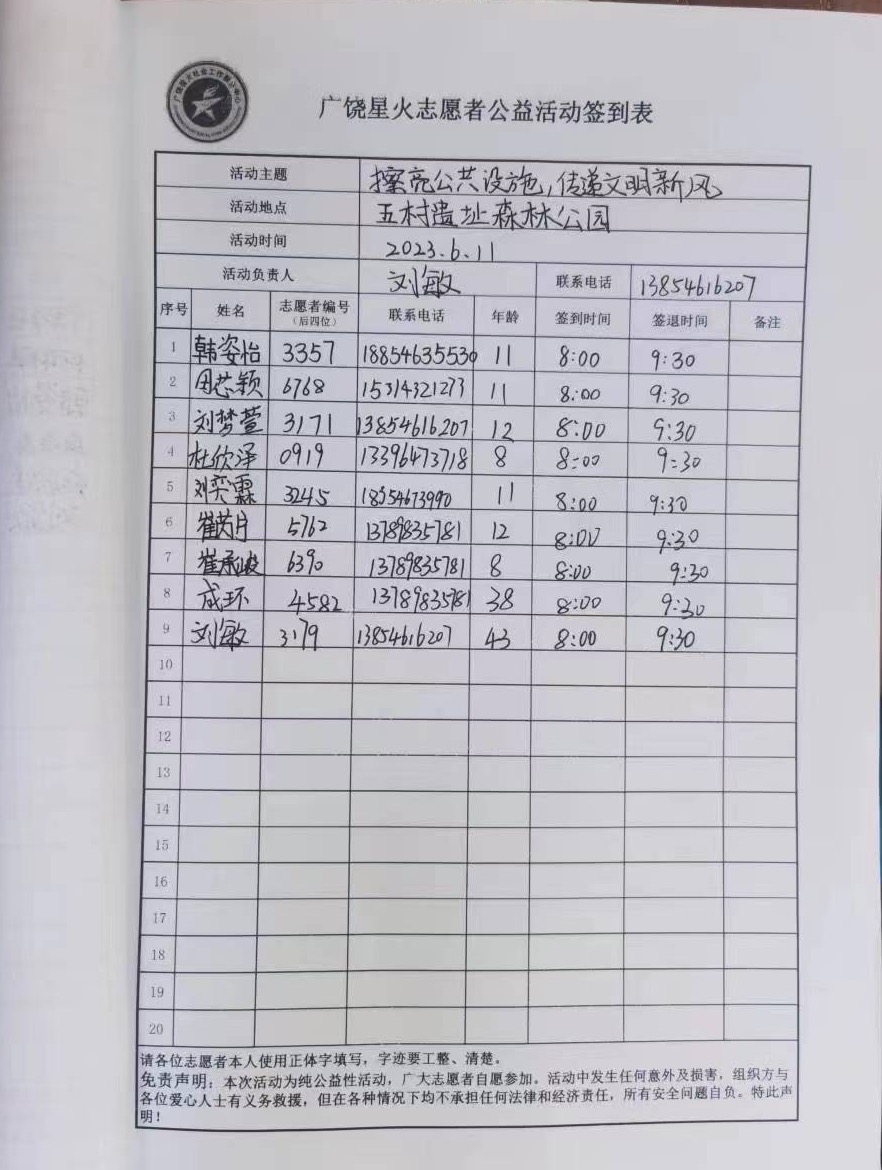 广饶星火志愿者公益活动签到表
活动主题 擦亮公共设施,传递文明新风
活动地点 五村遗址森林公园
活动时间 2023.6.11
活动负责人 刘敏 联系电话 13854616207
序号 姓名 志愿者编号(后四位) 联系电话 年龄 签到时间 签退时间 备注
1 韩姿怡 3357 18854635530 11 8:00 9:30
2 田芯颖 6768 15314321273 11 8:00 9:30
3 刘梦萱 3171 13854616207 12 8:00 9:30
4 杜欣泽 0919 13396473718 8 8:00 9:30
5 刘奕霖 3245 11 8:00 9:30
6 5762 13789835781 12 8:00 9:30
7 6390 13789835781 8 8:00 9:30
8 成环 4582 13789835781 38 8:00 9:30
9 刘敏 3179 13854616207 43 8:00 9:30
10
11
12
13
14
15
16
17
18
19
20
请各位志愿者本人使用正体字填写,字迹要工整、清楚。
免责声明:本次活动为纯公益性活动,广大志愿者自愿参加。活动中发生任何意外及损害,组织方与
各位爱心人士有义务救援,但在各种情况下均不承担任何法律和经济责任,所有安全问题自负。特此声
明!